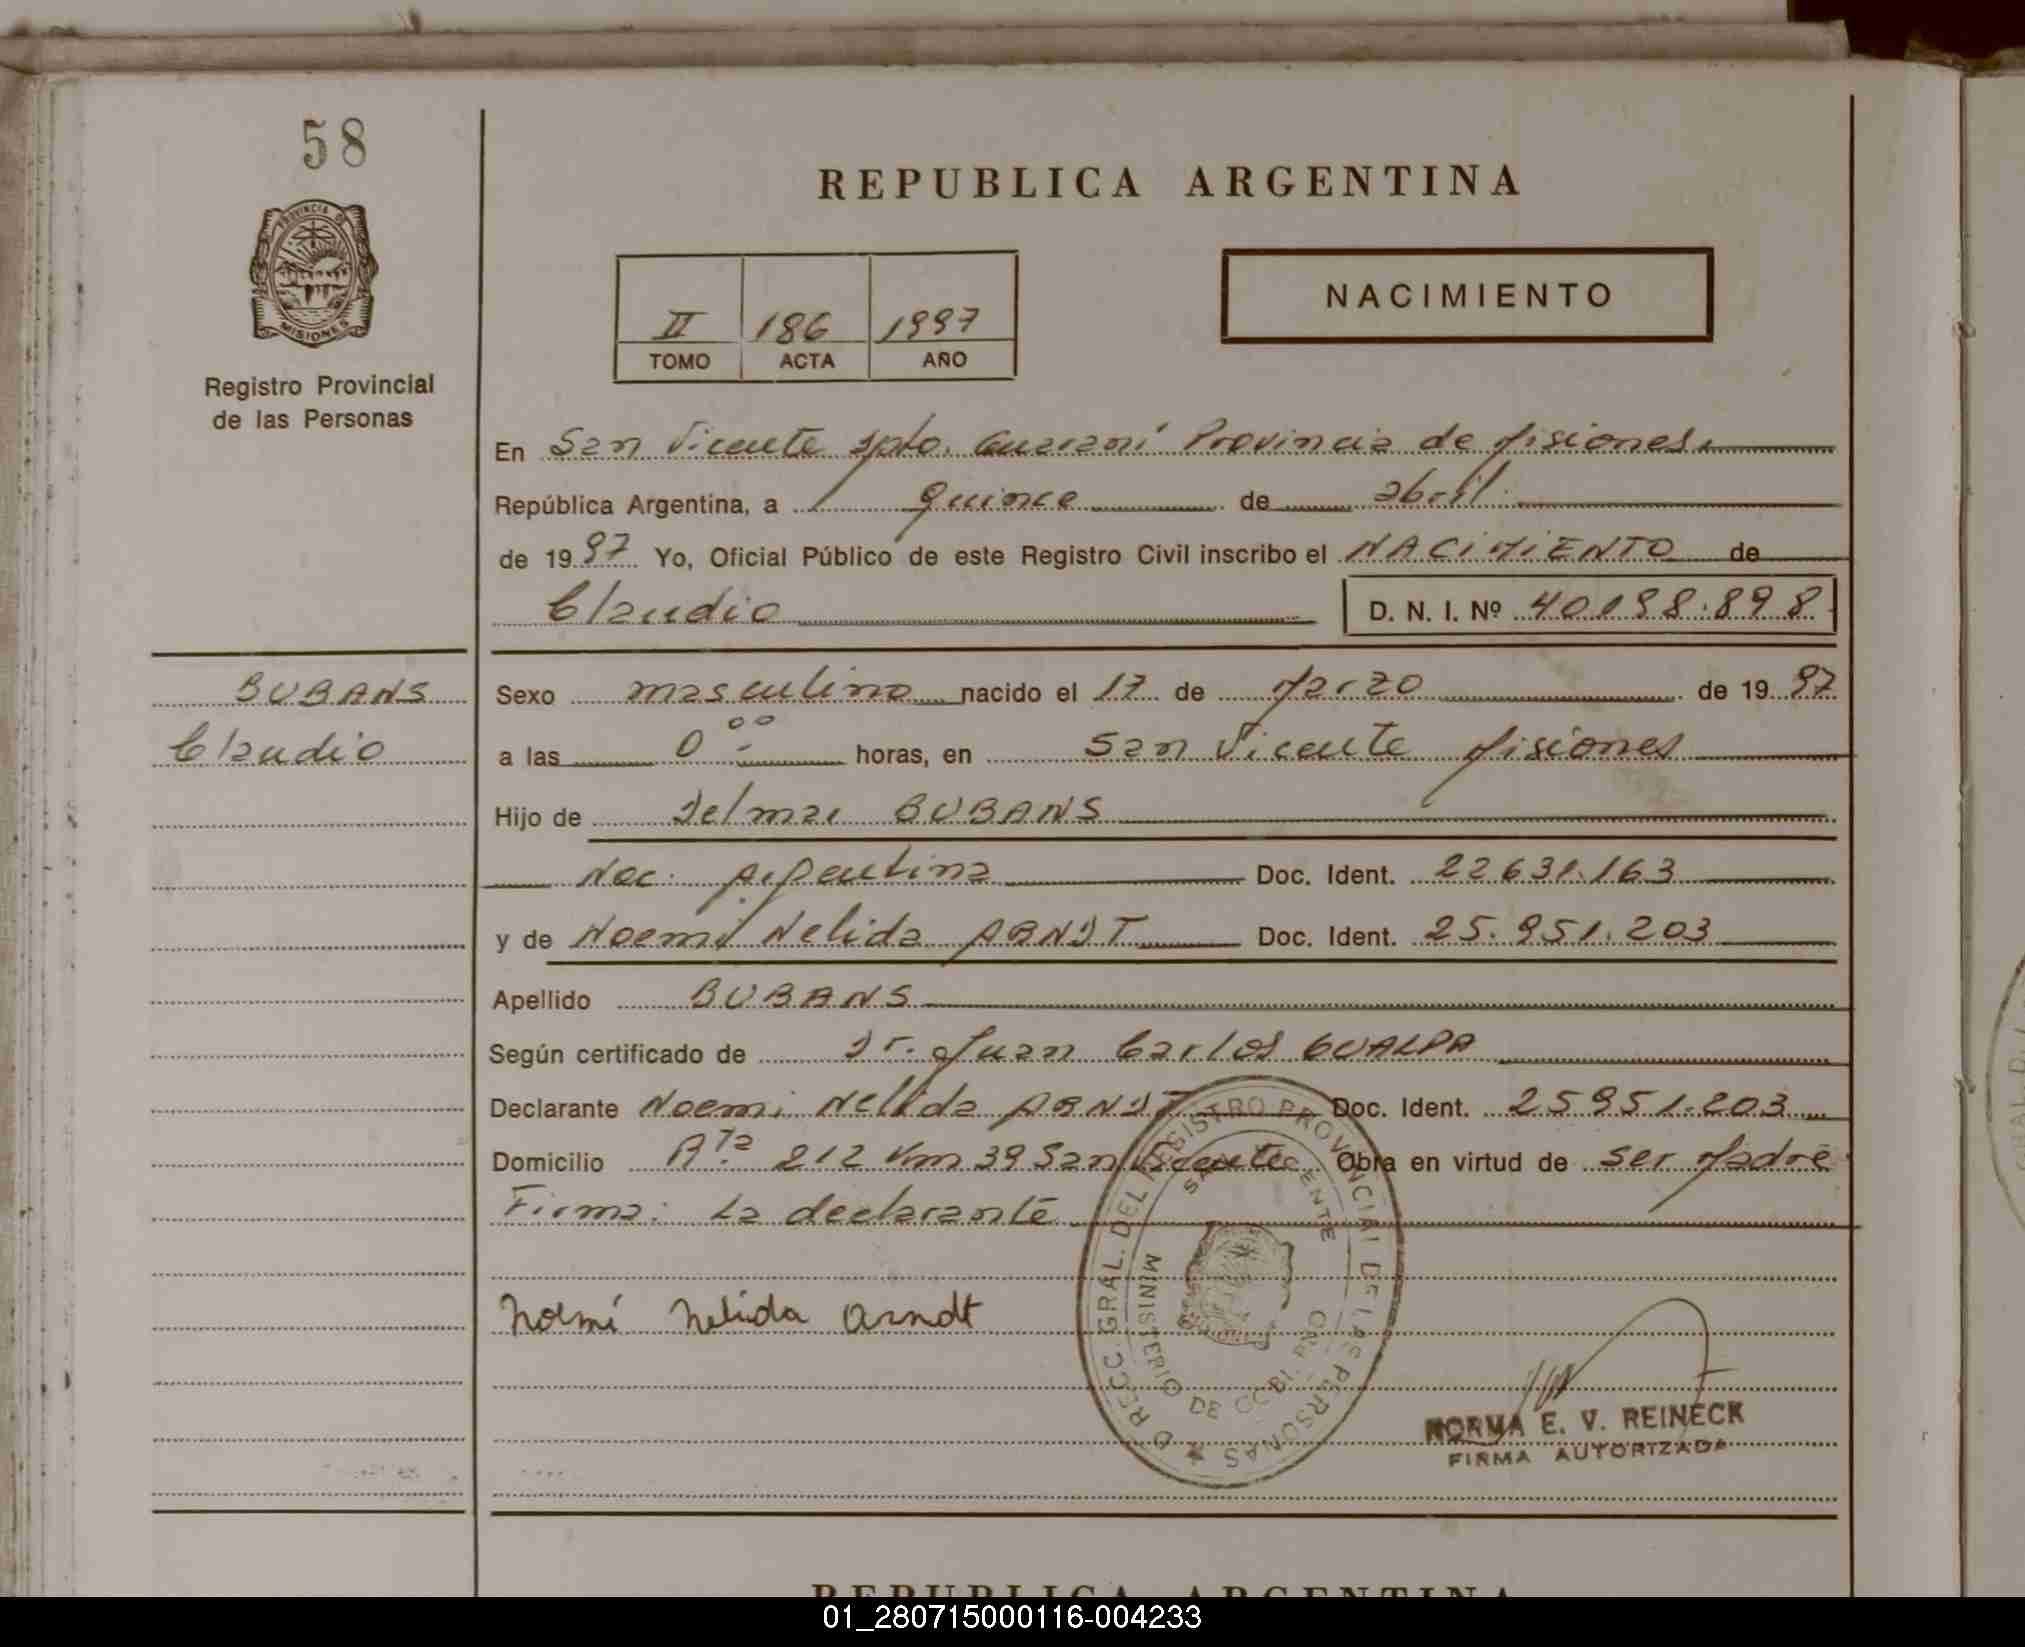 58
REPUBLICA ARGENTINA
PROVINCIA DE
MISIONES
Registro Provincial
de las Personas
II 186 1997
TOMO ACTA AÑO
NACIMIENTO
En San Vicente Dpto. Guaraní Provincia de Misiones.
República Argentina, a quince de abril
de 1997 Yo, Oficial Público de este Registro Civil inscribo el NACIMIENTO de
Claudio D. N. I. Nº 40198.898
BUBANS
Claudio
Sexo masculino nacido el 17 de Marzo de 1997
a las 0 00 horas, en San Vicente Misiones
Hijo de Delmar BUBANS
Nac. Argentina Doc. Ident. 22631.163
y de Noemi Nelida ARNDT Doc. Ident. 25.951.203
Apellido BUBANS
Según certificado de Dr. Juan Carlos GUALPA
Declarante Noemi Nelida ARNDT Doc. Ident. 25951.203
Domicilio Rta 212 Km 39 San Vicente. Obra en virtud de ser Madre
Firma: La declarante
Noemí Nelida Arndt
DIRECC. GRAL. DEL REGISTRO PROVINCIAL DE LAS PERSONAS
SAN VICENTE
MINISTERIO DE GOBIERNO
NORMA E. V. REINECK
FIRMA AUTORIZADA
REPUBLICA ARGENTINA
01_280715000116-004233